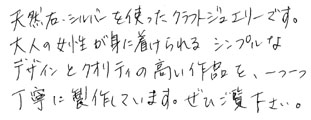 天然石・シルバーを使ったクラフトジュエリーです。
大人の女性が身に着けられる シンプルな
デザインとクオリティの高い作品を、一つ一つ
丁寧に製作しています。ぜひご覧下さい。